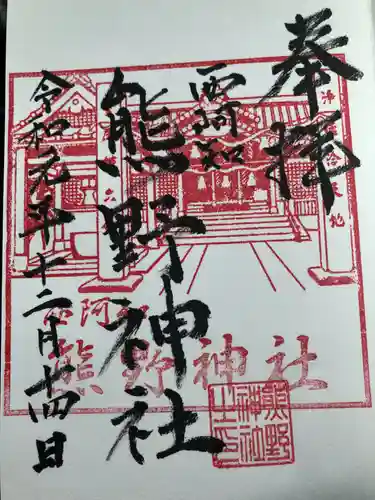 奉拝
西阿知
熊野神社
令和元年十二月廿四日
西阿知
熊野神社
熊野
神社
之印